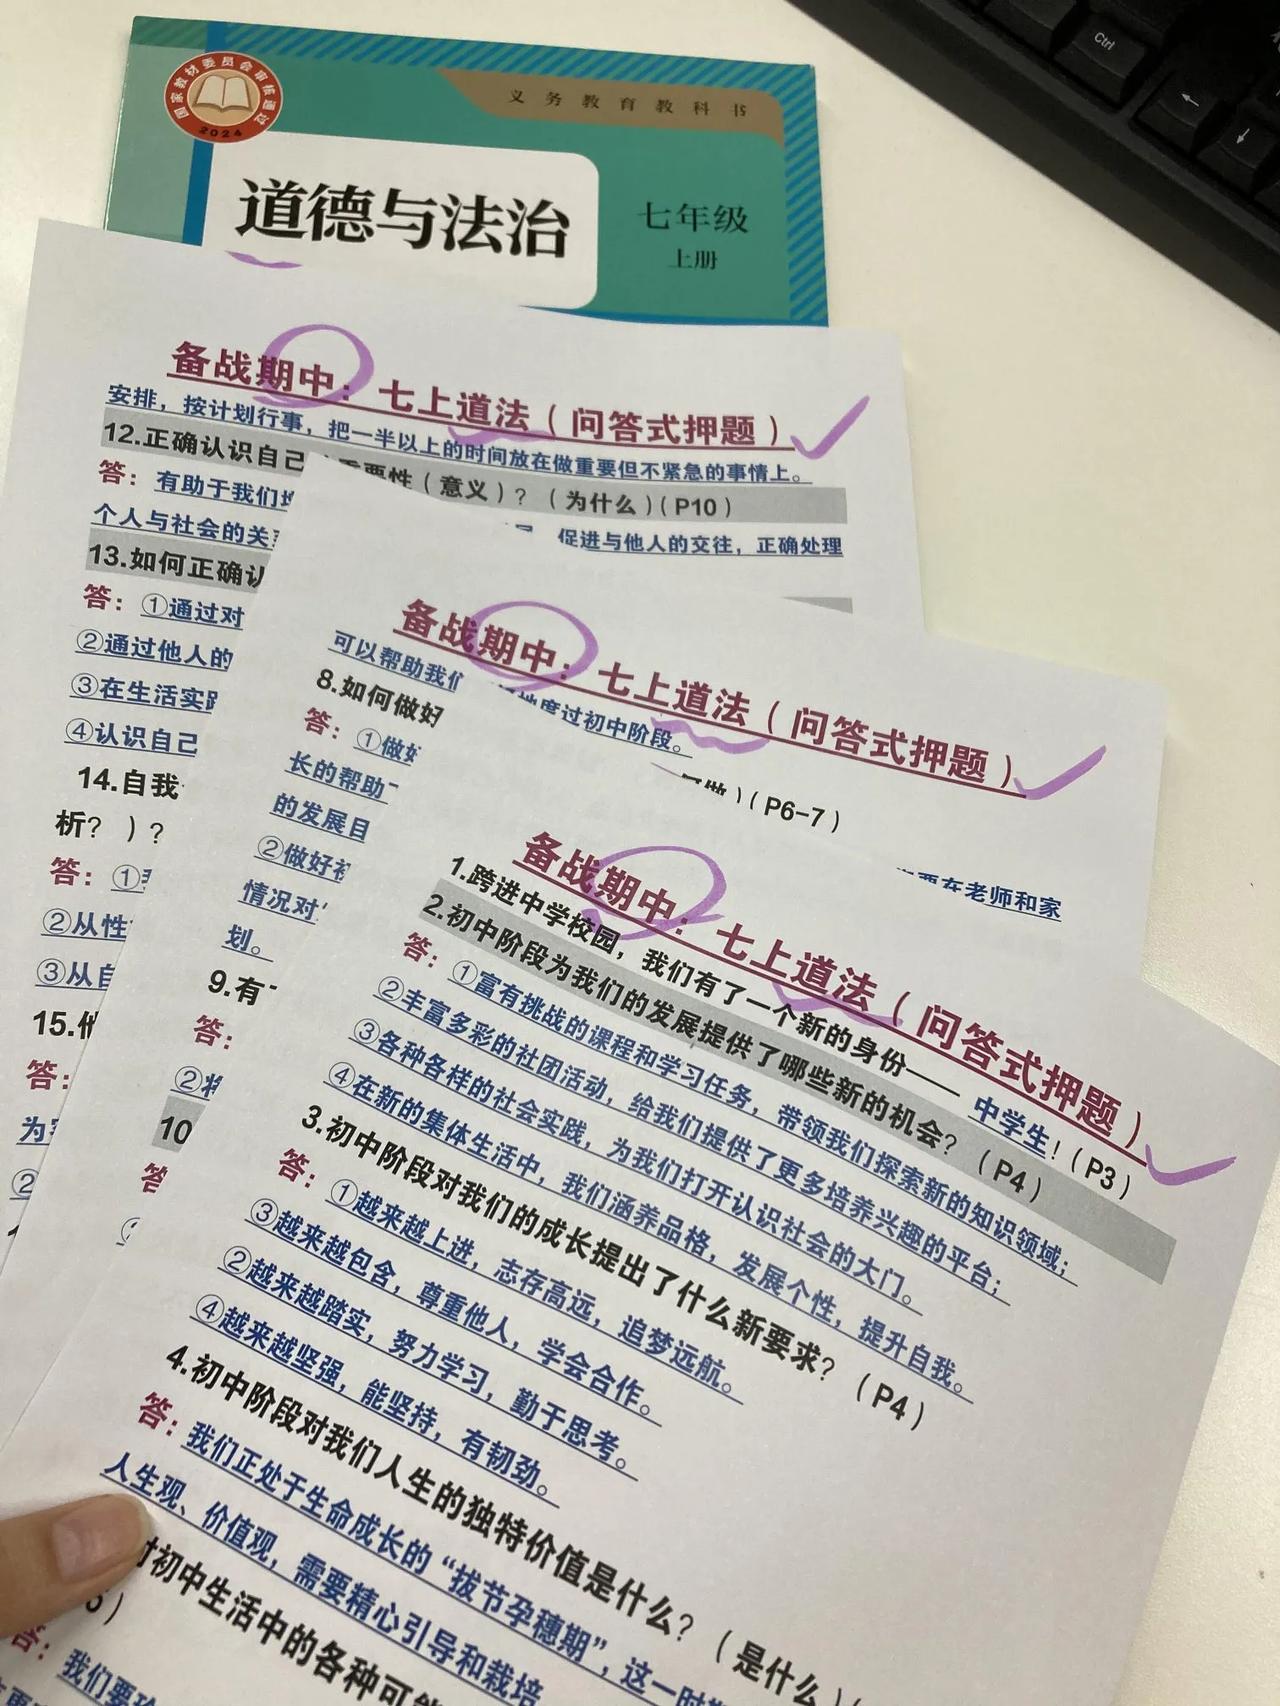 国家教材委员会审核通过
2024
义务教育教科书
道德与法治
七年级
上册
备战期中：七上道法（问答式押题）
安排，按计划行事，把一半以上的时间放在做重要但不紧急的事情上。
12.正确认识自己 重要性（意义）？（为什么）(P10)
答：有助于我们
促进与他人的交往，正确处理
个人与社会的关
13.如何正确认
答：①通过对
②通过他人的
③在生活实践
④认识自己
14.自我
析？）？
答：①
②从性
③从自
15.
答：
为
②
备战期中：七上道法（问答式押题）
可以帮助我们 地度过初中阶段。
8.如何做好 做）(P6-7)
答：①做好
要在老师和家
长的帮助
的发展目
②做好
情况对
划。
9.有
答：
②将
10
答
备战期中：七上道法（问答式押题）
1.跨进中学校园，我们有了一个新的身份——中学生！(P3)
2.初中阶段为我们的发展提供了哪些新的机会？(P4)
答：①富有挑战的课程和学习任务，带领我们探索新的知识领域；
②丰富多彩的社团活动，给我们提供了更多培养兴趣的平台；
③各种各样的社会实践，为我们打开认识社会的大门。
④在新的集体生活中，我们涵养品格，发展个性，提升自我。
3.初中阶段对我们的成长提出了什么新要求？(P4)
答：①越来越上进，志存高远，追梦远航。
③越来越包含，尊重他人，学会合作。
②越来越踏实，努力学习，勤于思考。
④越来越坚强，能坚持，有韧劲。
4.初中阶段对我们人生的独特价值是什么？（是什么）
答：我们正处于生命成长的“拔节孕穗期”，这一时
人生观、价值观，需要精心引导和栽培
对初中生活中的各种可能
5)
答：我们要
Ctrl
←
↓